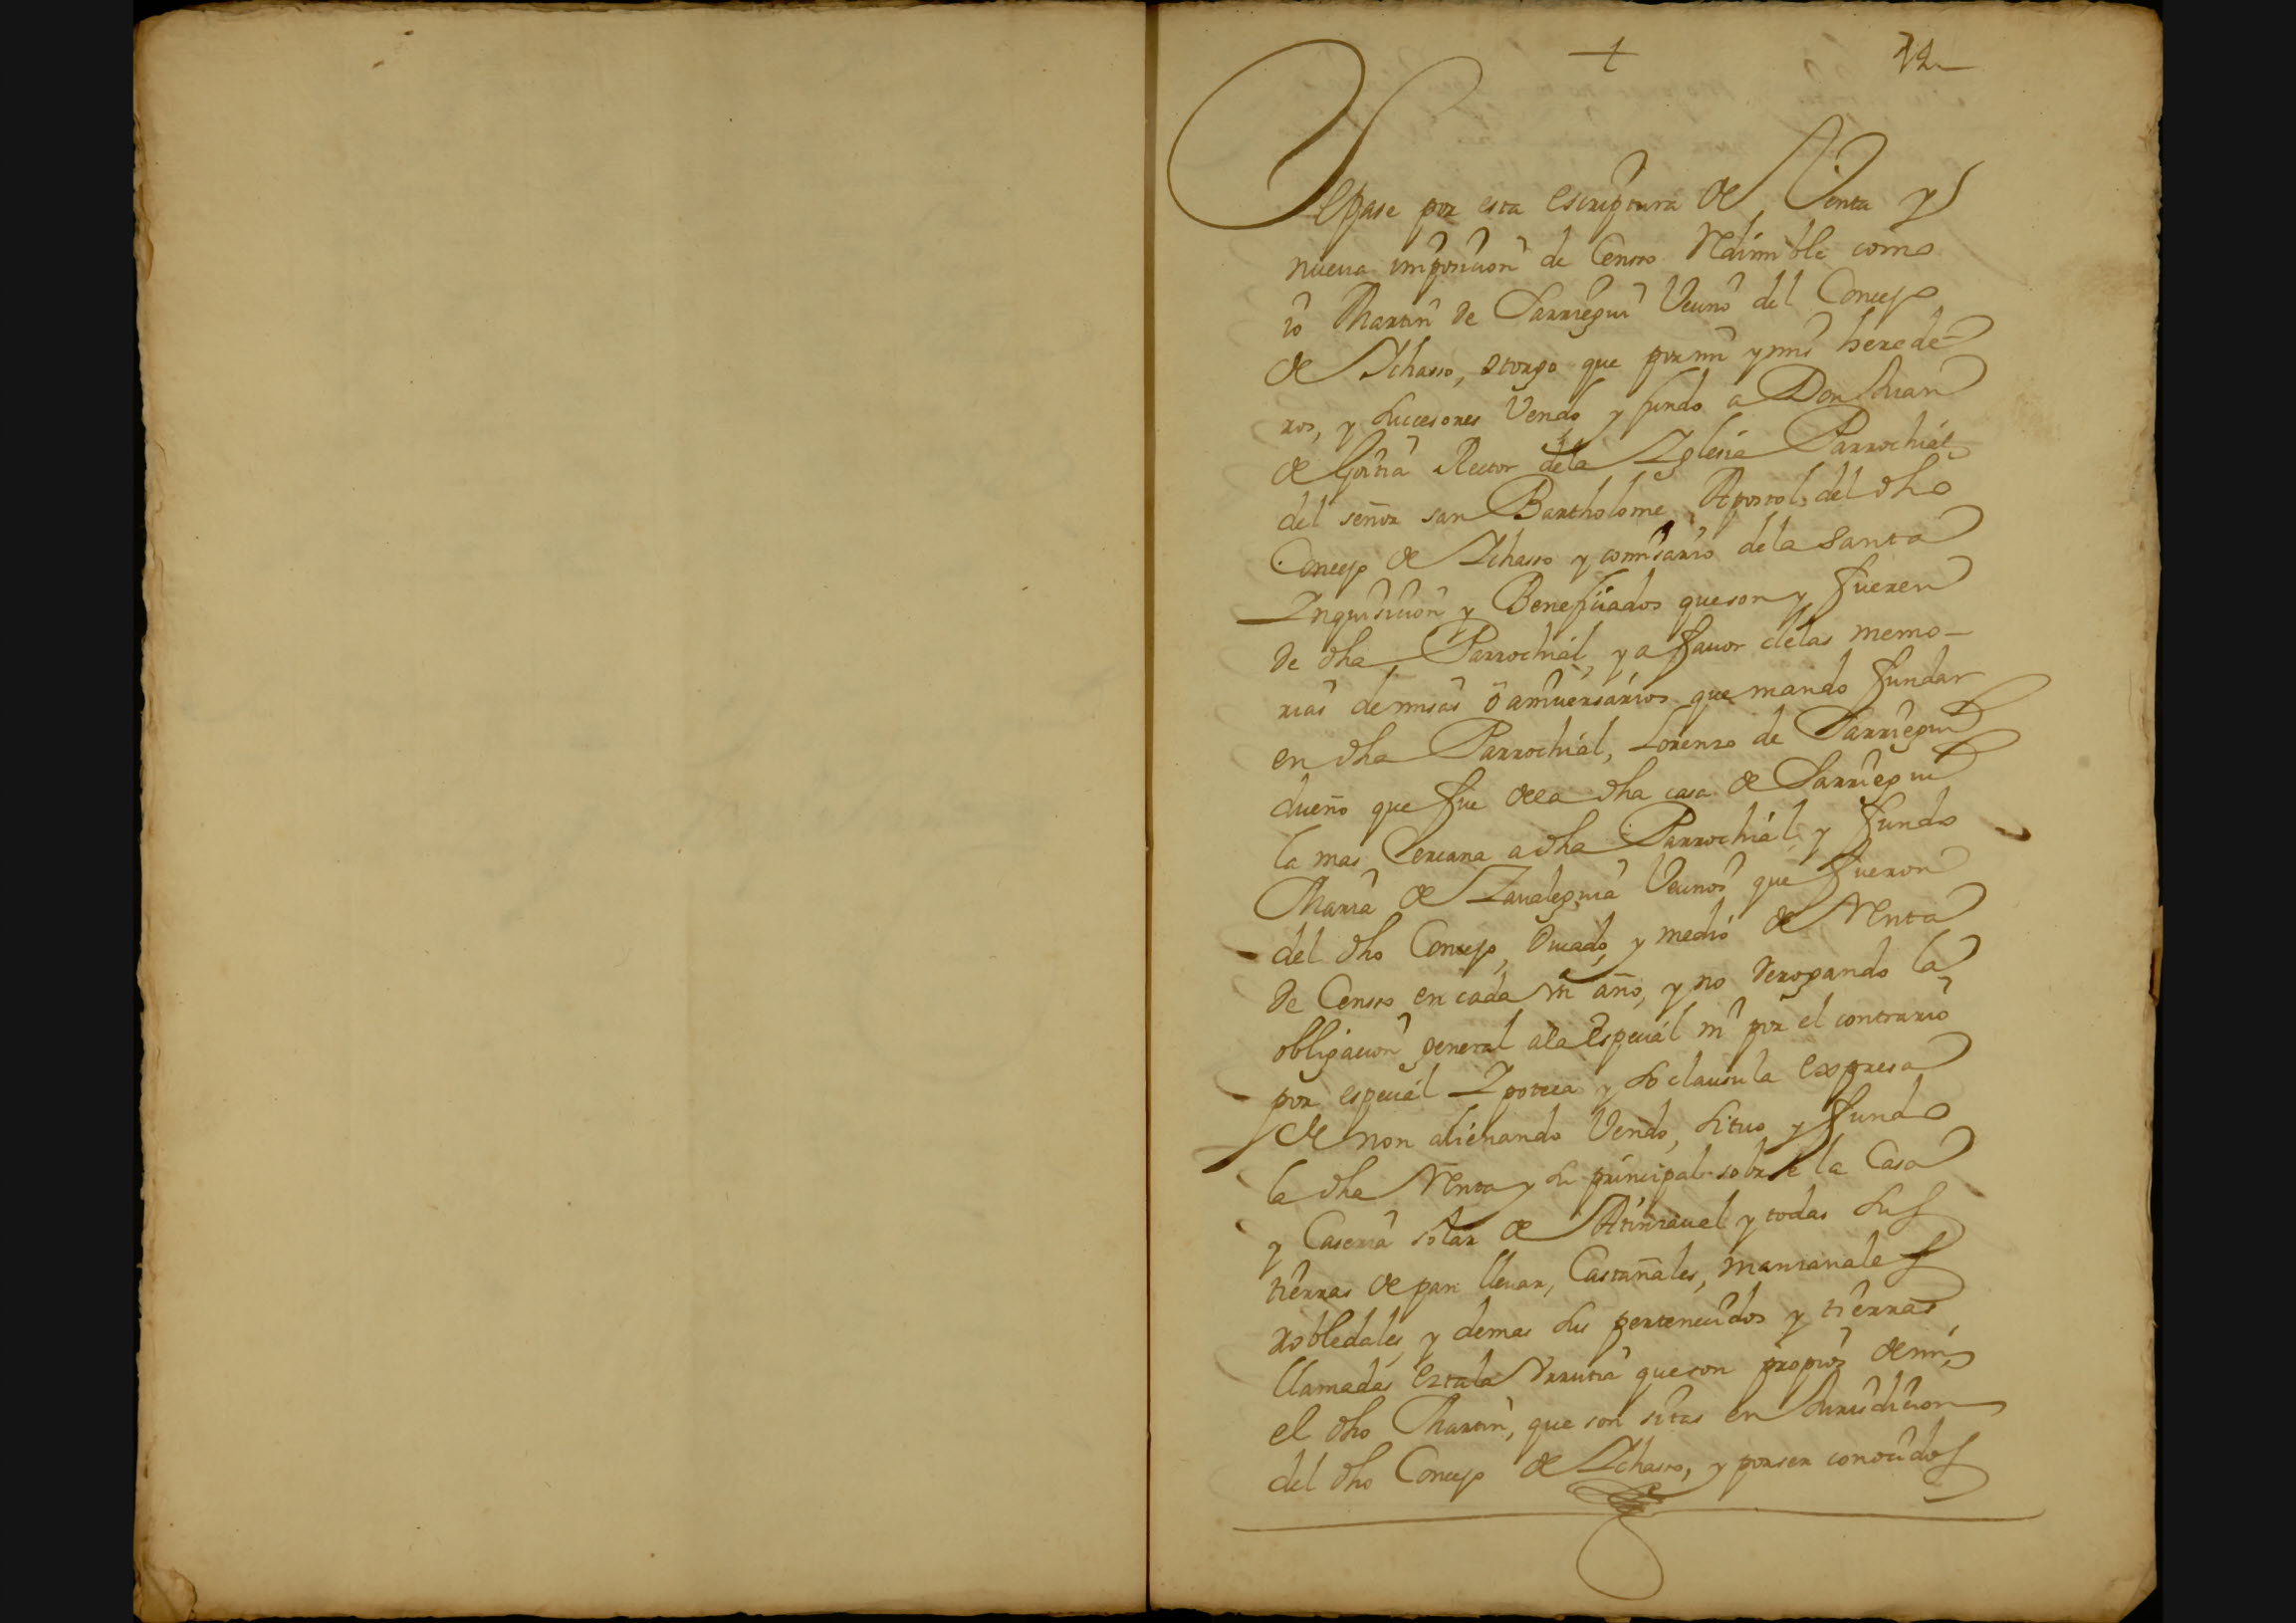 +
12
Sepase por esta escriptura de Venta y
nueua imposicion de Censso Redimible como
io Martin de Sarriegui Vecino del Concejo
de Ichasso, otorgo que por mi y mis herede-
ros, y succesores Vendo y fundo a Don Juan
de Gorria Rector dela Iglesia Parrochial
del señor san Bartholome Apostol del dho
Concejo de Ichasso y comisario de la Santa
Inquisicion y Beneficiados que son y fueren
de dha Parrochial, y a fauor delas memo-
rias de misas ô aniuersarios que mando fundar
en dha Parrochial, Lorenzo de Sarriegui
dueño que fue dela dha casa de Sarriegui
la mas Cercana a dha Parrochial, y fundo
Maria de Zaualeguia Vecinos que fueron
del dho Concejo, Ducado, y medio de Renta
de Censso en cada Vn año, y no derogando la
obligacion general ala Especial ni por el contrario
por especial Ipoteca y so clausula Expresa
de non alienando Vendo, situo y fundo
la dha Renta y su principal sobre la Casa
y Caseria solar de y todas sus
tierras de pan lleuar, Castañales, manzanales
robledales, y demas sus pertenecidos y tierras
llamadas Urrutia que son propios de mi
el dho Martin, que son sitas en Jurisdicion
del dho Concejo de Ichasso, y por ser conocidos